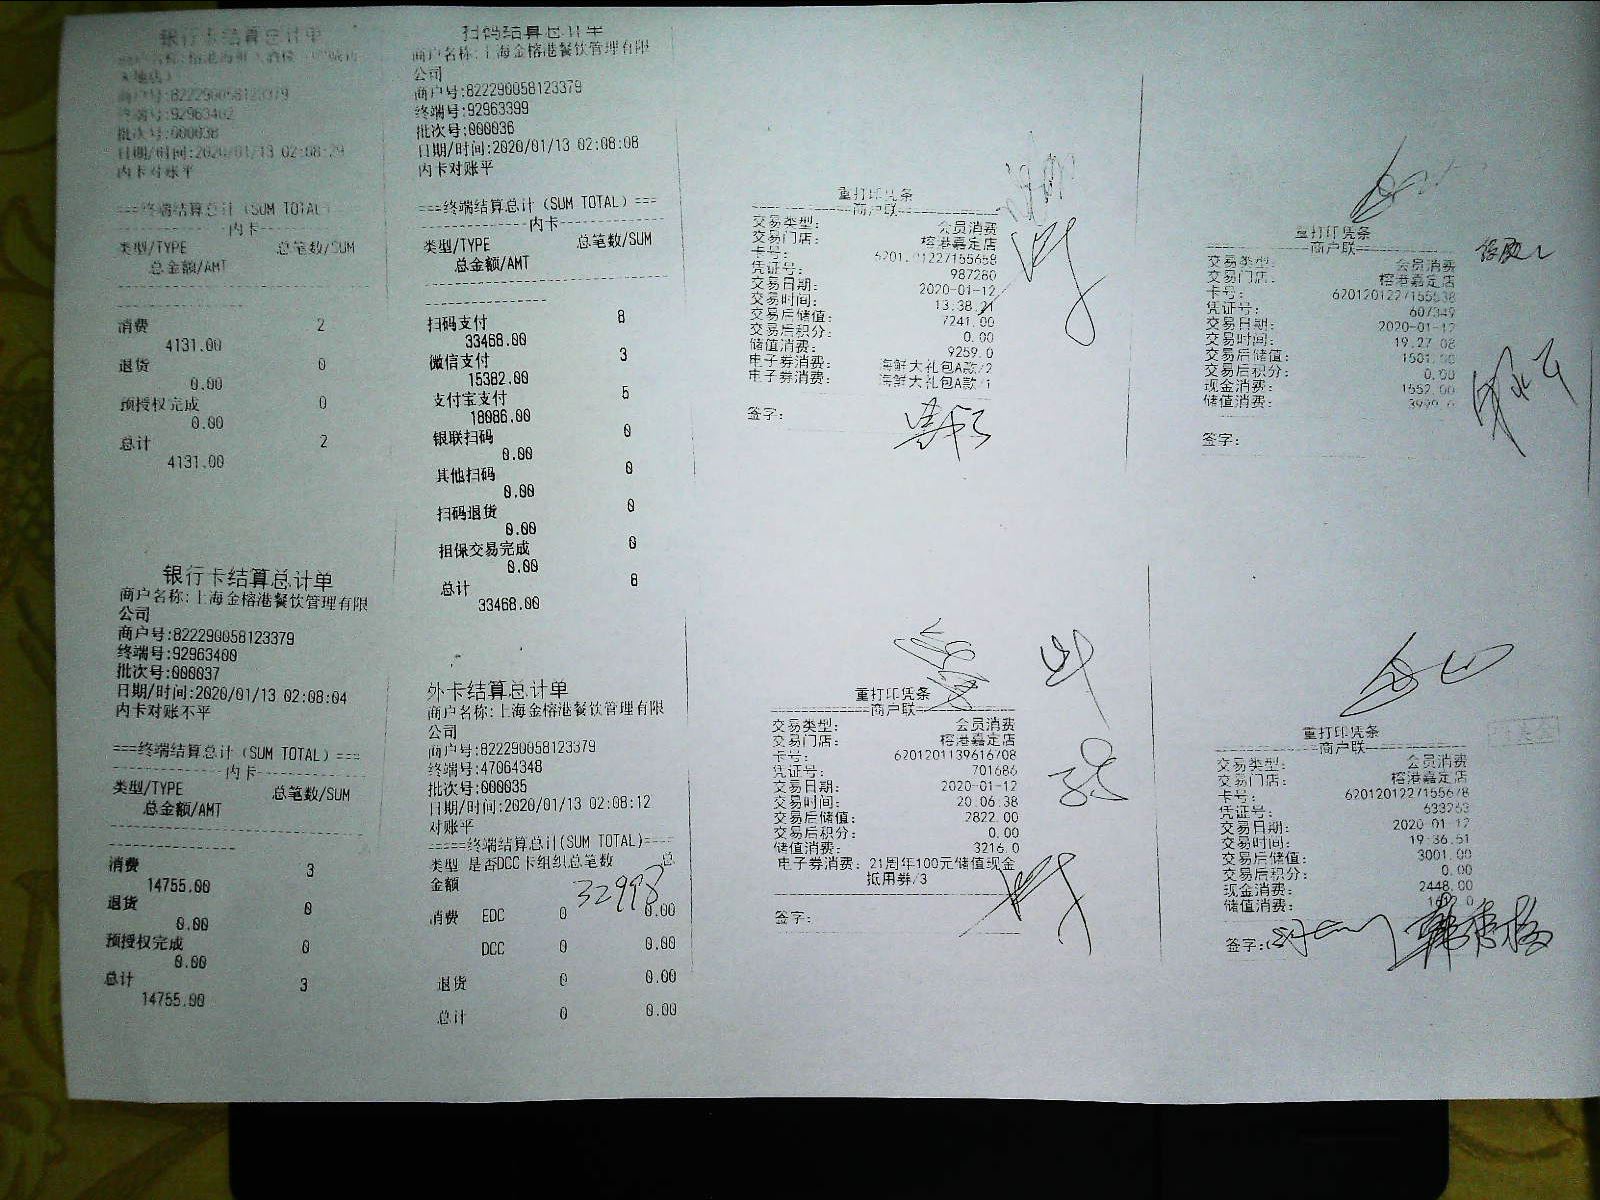 银行卡结算总计单
商户号:822290058123379
终端号:92963402
批次号:000036
日期/时间:2020/01/13 02:08:29
内卡对账平
===终端结算总计(SUM TOTAL)
内卡
类型/TYPE 总笔数/SUM
总金额/AMT
消费 2
4131.00
退货 0
0.00
预授权完成 0
0.00
总计 2
4131.00
银行卡结算总计单
商户名称:上海金榕港餐饮管理有限
公司
商户号:822290058123379
终端号:92963400
批次号:000037
日期/时间:2020/01/13 02:08:04
内卡对账不平
===终端结算总计(SUM TOTAL)===
内卡
类型/TYPE 总笔数/SUM
总金额/AMT
消费 3
14755.00
退货 0
0.00
预授权完成 0
0.00
总计 3
14755.00
扫码结算总计单
商户名称:上海金榕港餐饮管理有限
公司
商户号:822290058123379
终端号:92963399
批次号:000036
日期/时间:2020/01/13 02:08:08
内卡对账平
===终端结算总计(SUM TOTAL)===
内卡
类型/TYPE 总笔数/SUM
总金额/AMT
扫码支付 8
33468.00
微信支付 3
15382.00
支付宝支付 5
18086.00
银联扫码 0
0.00
其他扫码 0
0.00
扫码退货 0
0.00
担保交易完成 0
0.00
总计 8
33468.00
外卡结算总计单
商户名称:上海金榕港餐饮管理有限
公司
商户号:822290058123379
终端号:47064348
批次号:000035
日期/时间:2020/01/13 02:08:12
对账平
=====终端结算总计(SUM TOTAL)====
类型 是否DCC卡组织总笔数 总
金额
32998
消费 EDC 0 0.00
DCC 0 0.00
退货 0 0.00
总计 0 0.00
重打印凭条
商户联
交易类型: 会员消费
交易门店: 榕港嘉定店
卡号:
凭证号: 987280
交易日期: 2020-01-12
交易时间: 13.38.21
交易后储值: 7241.00
交易后积分: 0.00
储值消费: 9259.0
电子券消费: 海鲜大礼包A款/2
电子券消费: 海鲜大礼包A款/1
签字:
重打印凭条
商户联
交易类型: 会员消费
交易门店: 榕港嘉定店
卡号: 6201201139616708
凭证号: 701686
交易日期: 2020-01-12
交易时间: 20.06.38
交易后储值: 2822.00
交易后积分: 0.00
储值消费: 3216.0
电子券消费: 21周年100元储值现金
抵用券/3
签字:
重打印凭条
商户联
交易类型: 会员消费
交易门店: 榕港嘉定店
卡号: 6201201227155538
凭证号: 607349
交易日期: 2020-01-12
交易时间: 19.27.08
交易后储值: 1501.00
交易后积分: 0.00
现金消费: 1552.00
储值消费: 3999.0
签字:
重打印凭条
商户联
交易类型: 会员消费
交易门店: 榕港嘉定店
卡号: 6201201227155678
凭证号: 633263
交易日期: 2020-01-12
交易时间: 19.36.51
交易后储值: 3001.00
交易后积分: 0.00
现金消费: 2448.00
储值消费:
签字: